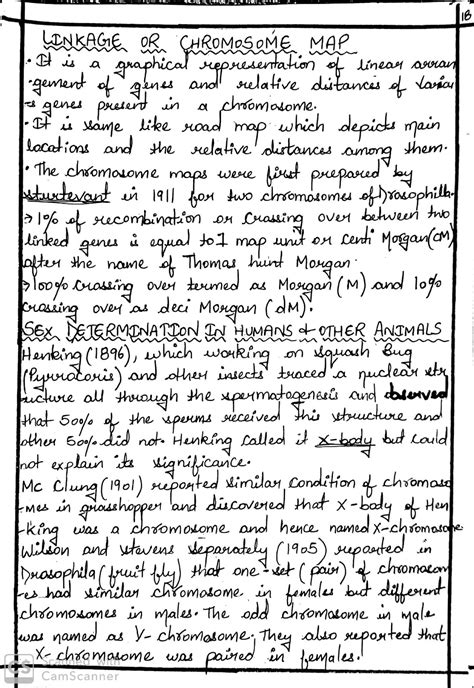 18
LINKAGE OR CHROMOSOME MAP
• It is a graphical representation of linear arran
-gement of genes and relative distances of variou
-s genes present in a chromosome.
• It is same like road map which depicts main
locations and the relative distances among them.
• The chromosome maps were first prepared by
sturtevant in 1911 for two chromosomes of Drosophilla.
→ 1% of recombination or Crossing over between two
linked genes is equal to 1 map unit or centi Morgan(cM)
after the name of Thomas hunt Morgan.
→ 100% crossing over termed as Morgan (M) and 10%
crossing over as deci Morgan (dM).
SEX DETERMINATION IN HUMANS & OTHER ANIMALS
Henking (1896), which working on squash Bug
(Pyrrocoris) and other insects traced a nuclear str
-ucture all through the spermatogenesis and observed
that 50% of the sperms received this structure and
other 50% did not. Henking called it X-body but could
not explain its significance.
Mc Clung (1901) reported similar condition of chromoso
-mes in grasshopper and discovered that X-body of Hen
-King was a chromosome and hence named X-chromosome
Wilson and stevens separately (1905) reported in
Drosophila (fruit fly) that one-set (pair) of chromosom
-es had similar chromosome in females but different
chromosomes in males. The odd chromosome in male
was named as Y-chromosome. They also reported that
X-chromosome was paired in females.
CS
CamScanner